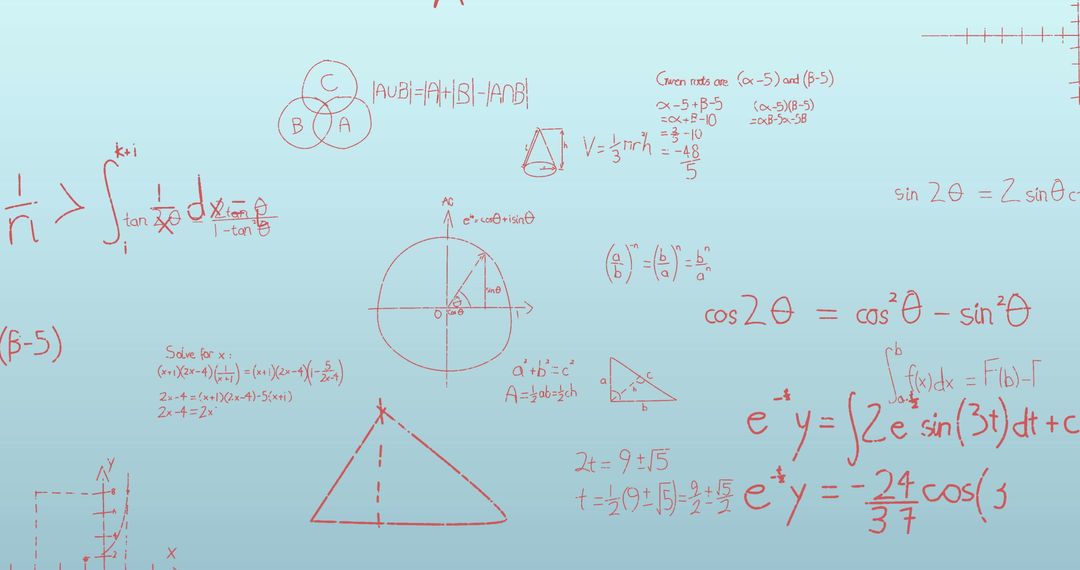 C
B
A
|A∪B|=|A|+|B|-|A∩B|
Given roots are (α-5) and (β-5)
α-5+β-5
=α+β-10
=-10
=-48
5
(α-5)(β-5)
=αB-5α-5B
h
V=1/3πr²h
k+i
1/n > ∫
i
dx
tan
1-tan²θ
sin 2θ = 2 sinθc
e^iθ=cosθ+isinθ
sinθ
θ
0
cosθ
1
(a/b)^-n=(b/a)^n=b^n/a^n
cos2θ = cos²θ - sin²θ
(β-5)
Solve for x:
(x+1)(2x-4)(1/(x+1))=(x+1)(2x-4)(1-5/(2x-4))
2x-4=(x+1)(2x-4)-5(x+1)
2x-4=2x
a²+b²=c²
A=½ab=½ch
a
h
c
b
b
∫f(x)dx = F(b)-
a
y=∫2e sin(3t)dt+c
2t=9±√5
t=½(9±√5)=9/2±√5/2
y=-24/37 cos(3
y
8
4
2
x